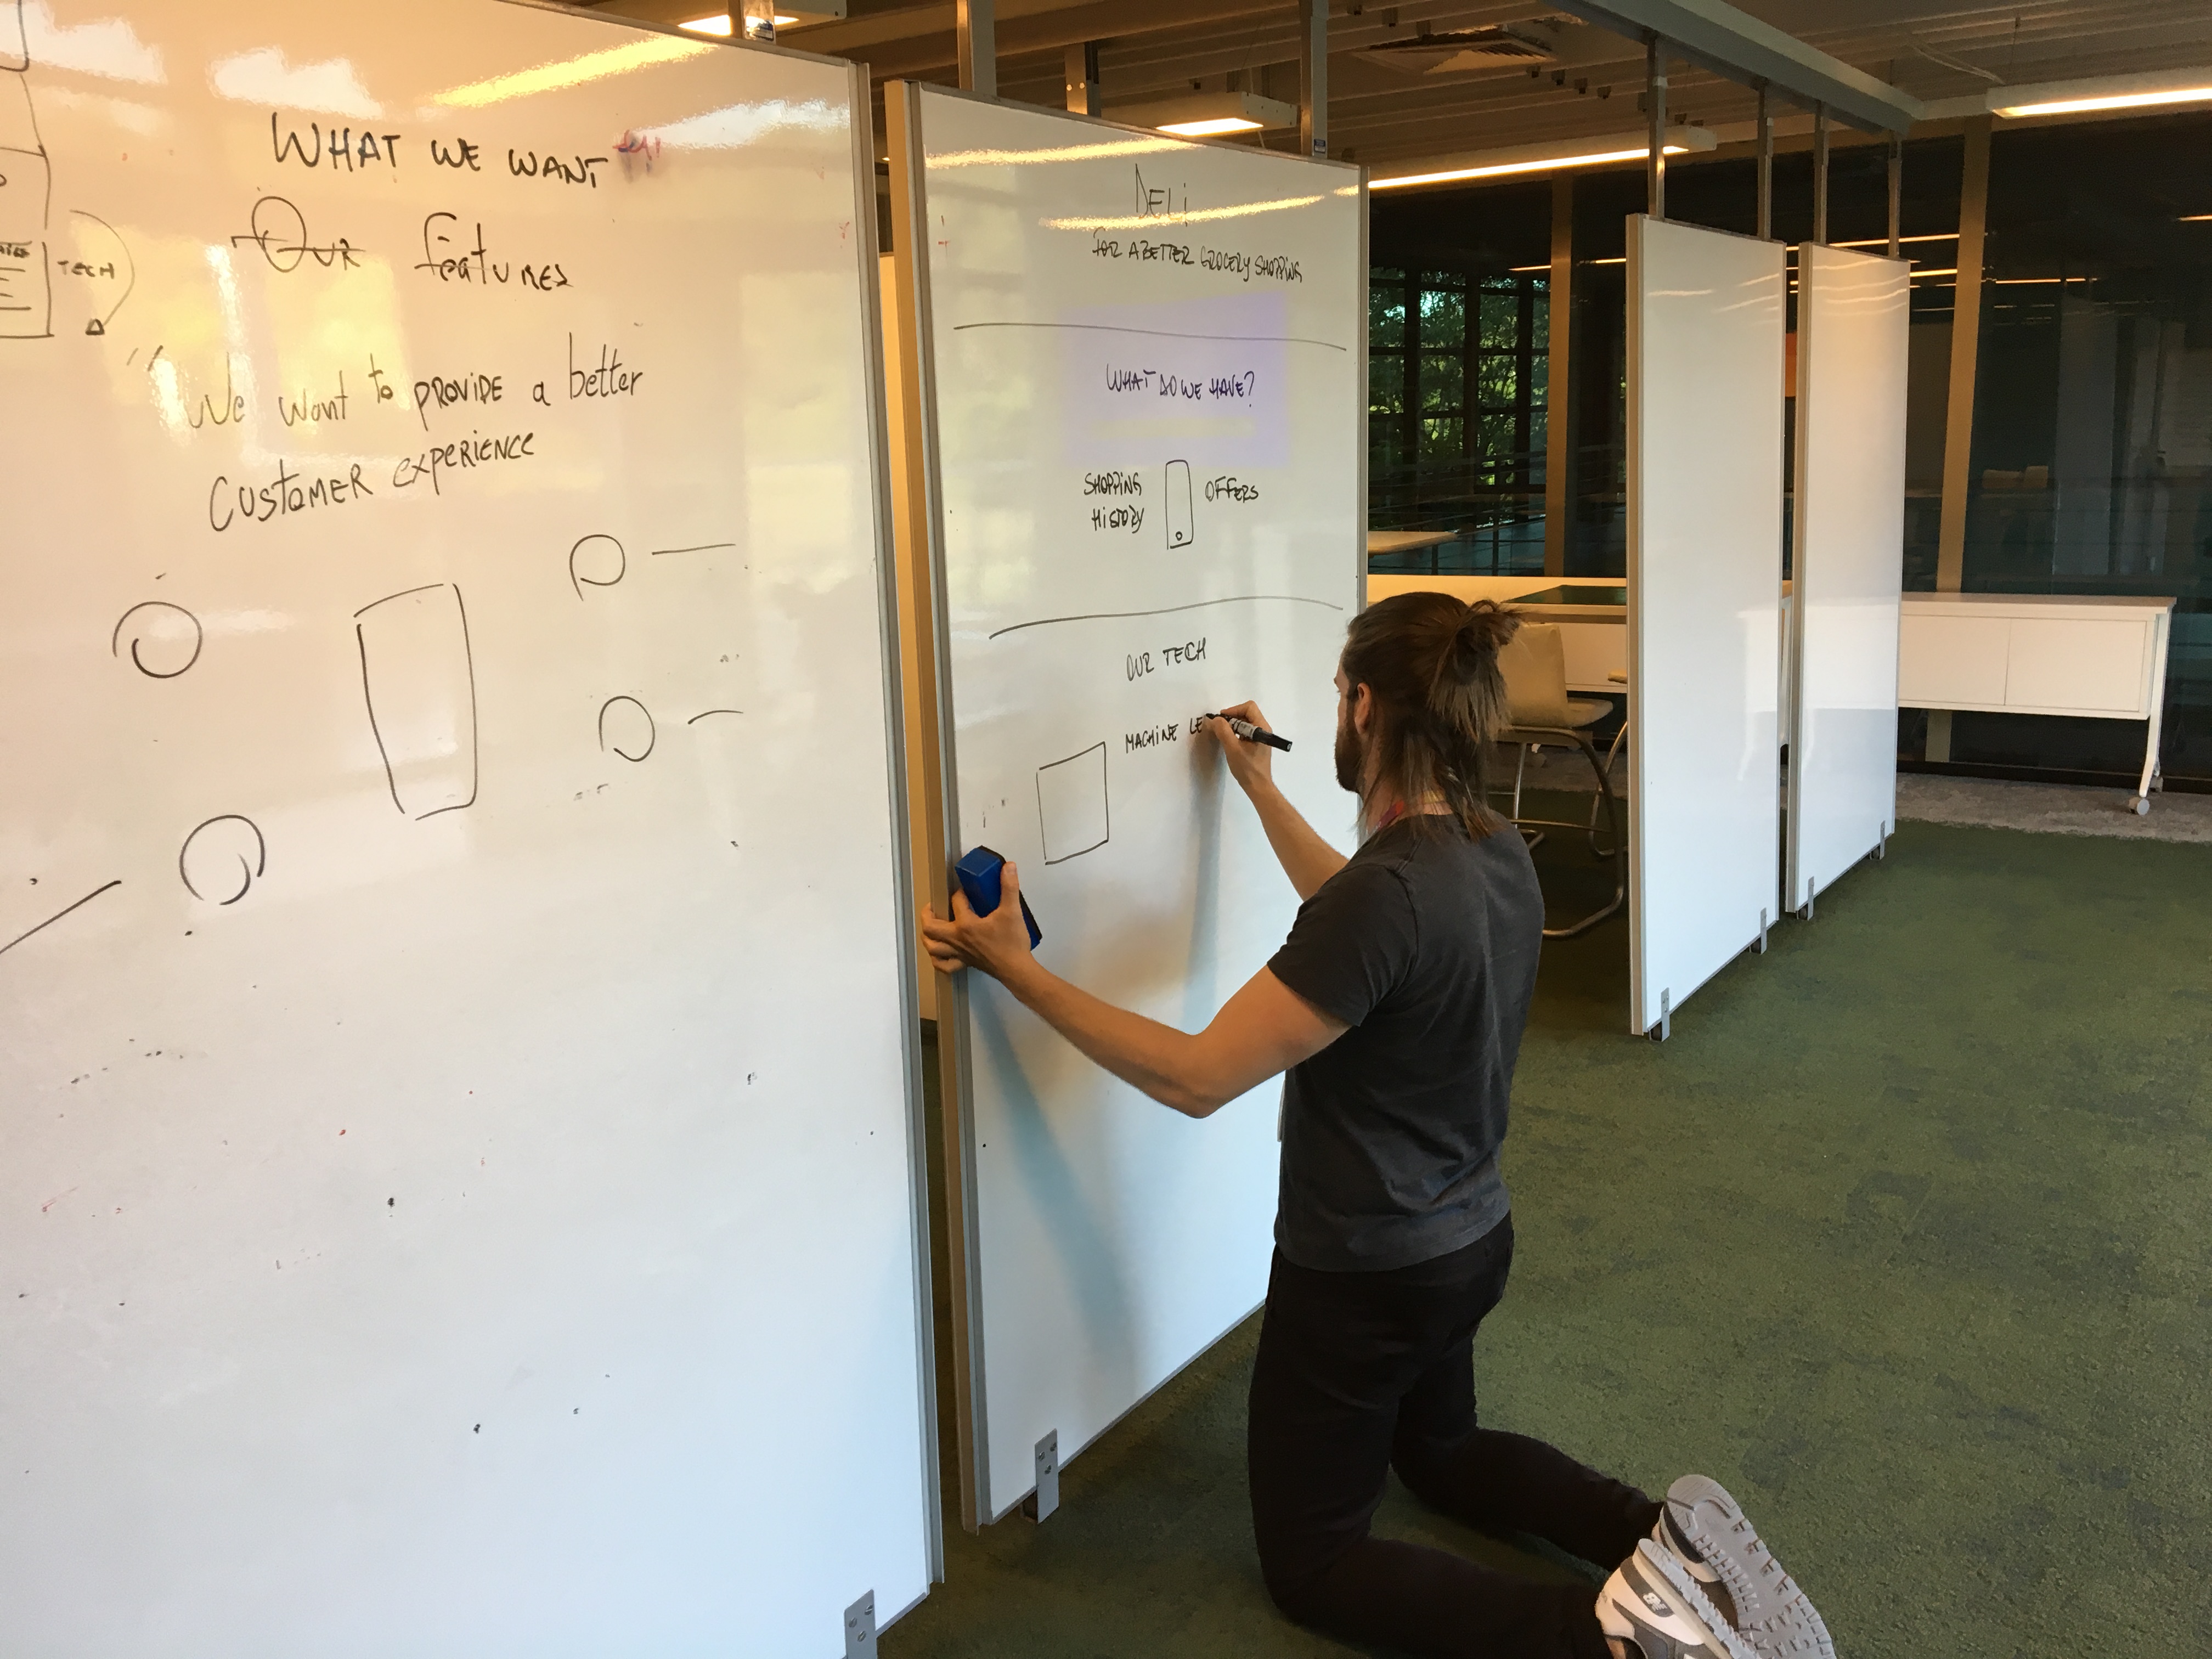 TECH
WHAT WE WANT
Our features
"We want to PROVIDE a better
Customer experience
DELi
FOR A BETTER GROCERY SHOPPING
WHAT DO WE HAVE?
SHOPPING
HISTORY
OFFERS
OUR TECH
MACHINE LE